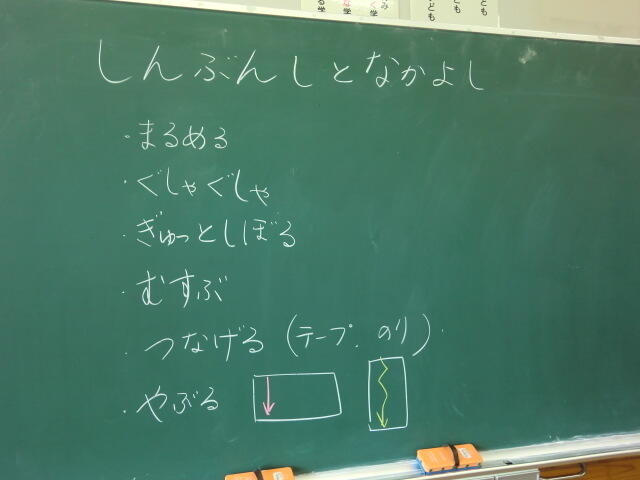 しんぶんしとなかよし
・まるめる
・ぐしゃぐしゃ
・ぎゅっとしぼる
・むすぶ
・つなげる(テープ、のり)
・やぶる